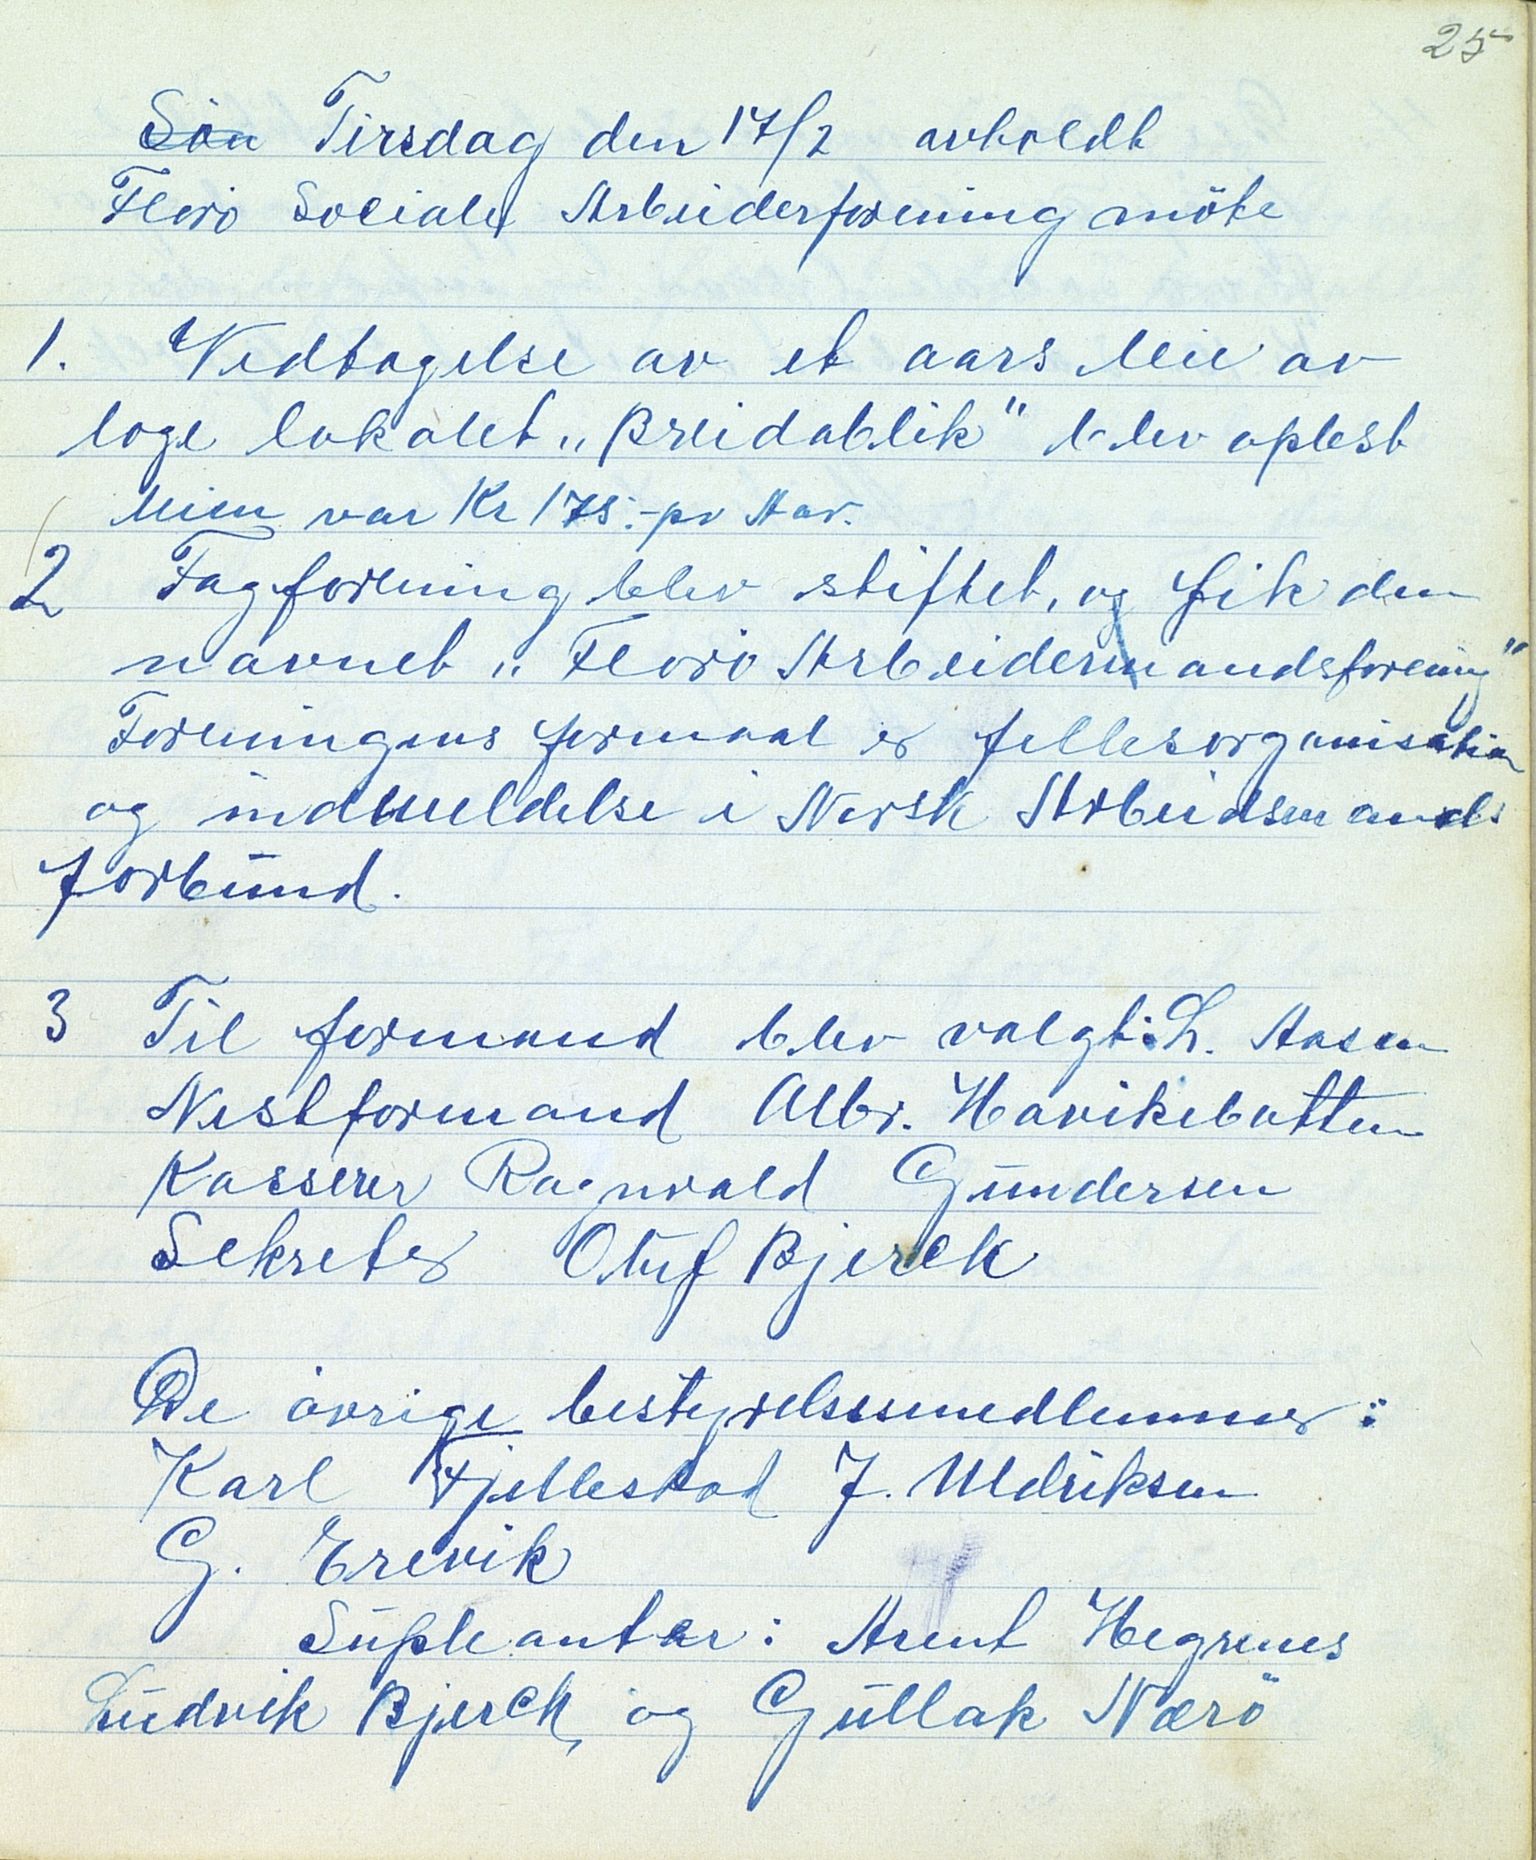 25
Søn Tirsdag den 17/2 avholdt
Florö Sociale Arbeiderforening möte
1. Vedtagelse av et aars leie av
loge lokalet „Breidablik" blev oplest
leien var Kr 175.- pr Aar.
2 Fagforening blev stiftet, og fik den
navnet „Florö Arbeidermandsforening"
Foreningens formaal er fellesorganisation
og indmeldelse i Norsk Arbeidsmands
forbund.
3 Til formand blev valgt: L. Aasen
Nestformand Albr. Havikbotten
Kasserer Ragnvald Gundersen
Sekretær Oluf Bjerck
De övrige bestyrelsesmedlemmer:
Karl Fjellestad J. Uldriksen
G. Erevik
Supleanter: Arent Hegrenes
Ludvik Bjerck, og Gullak Nærö